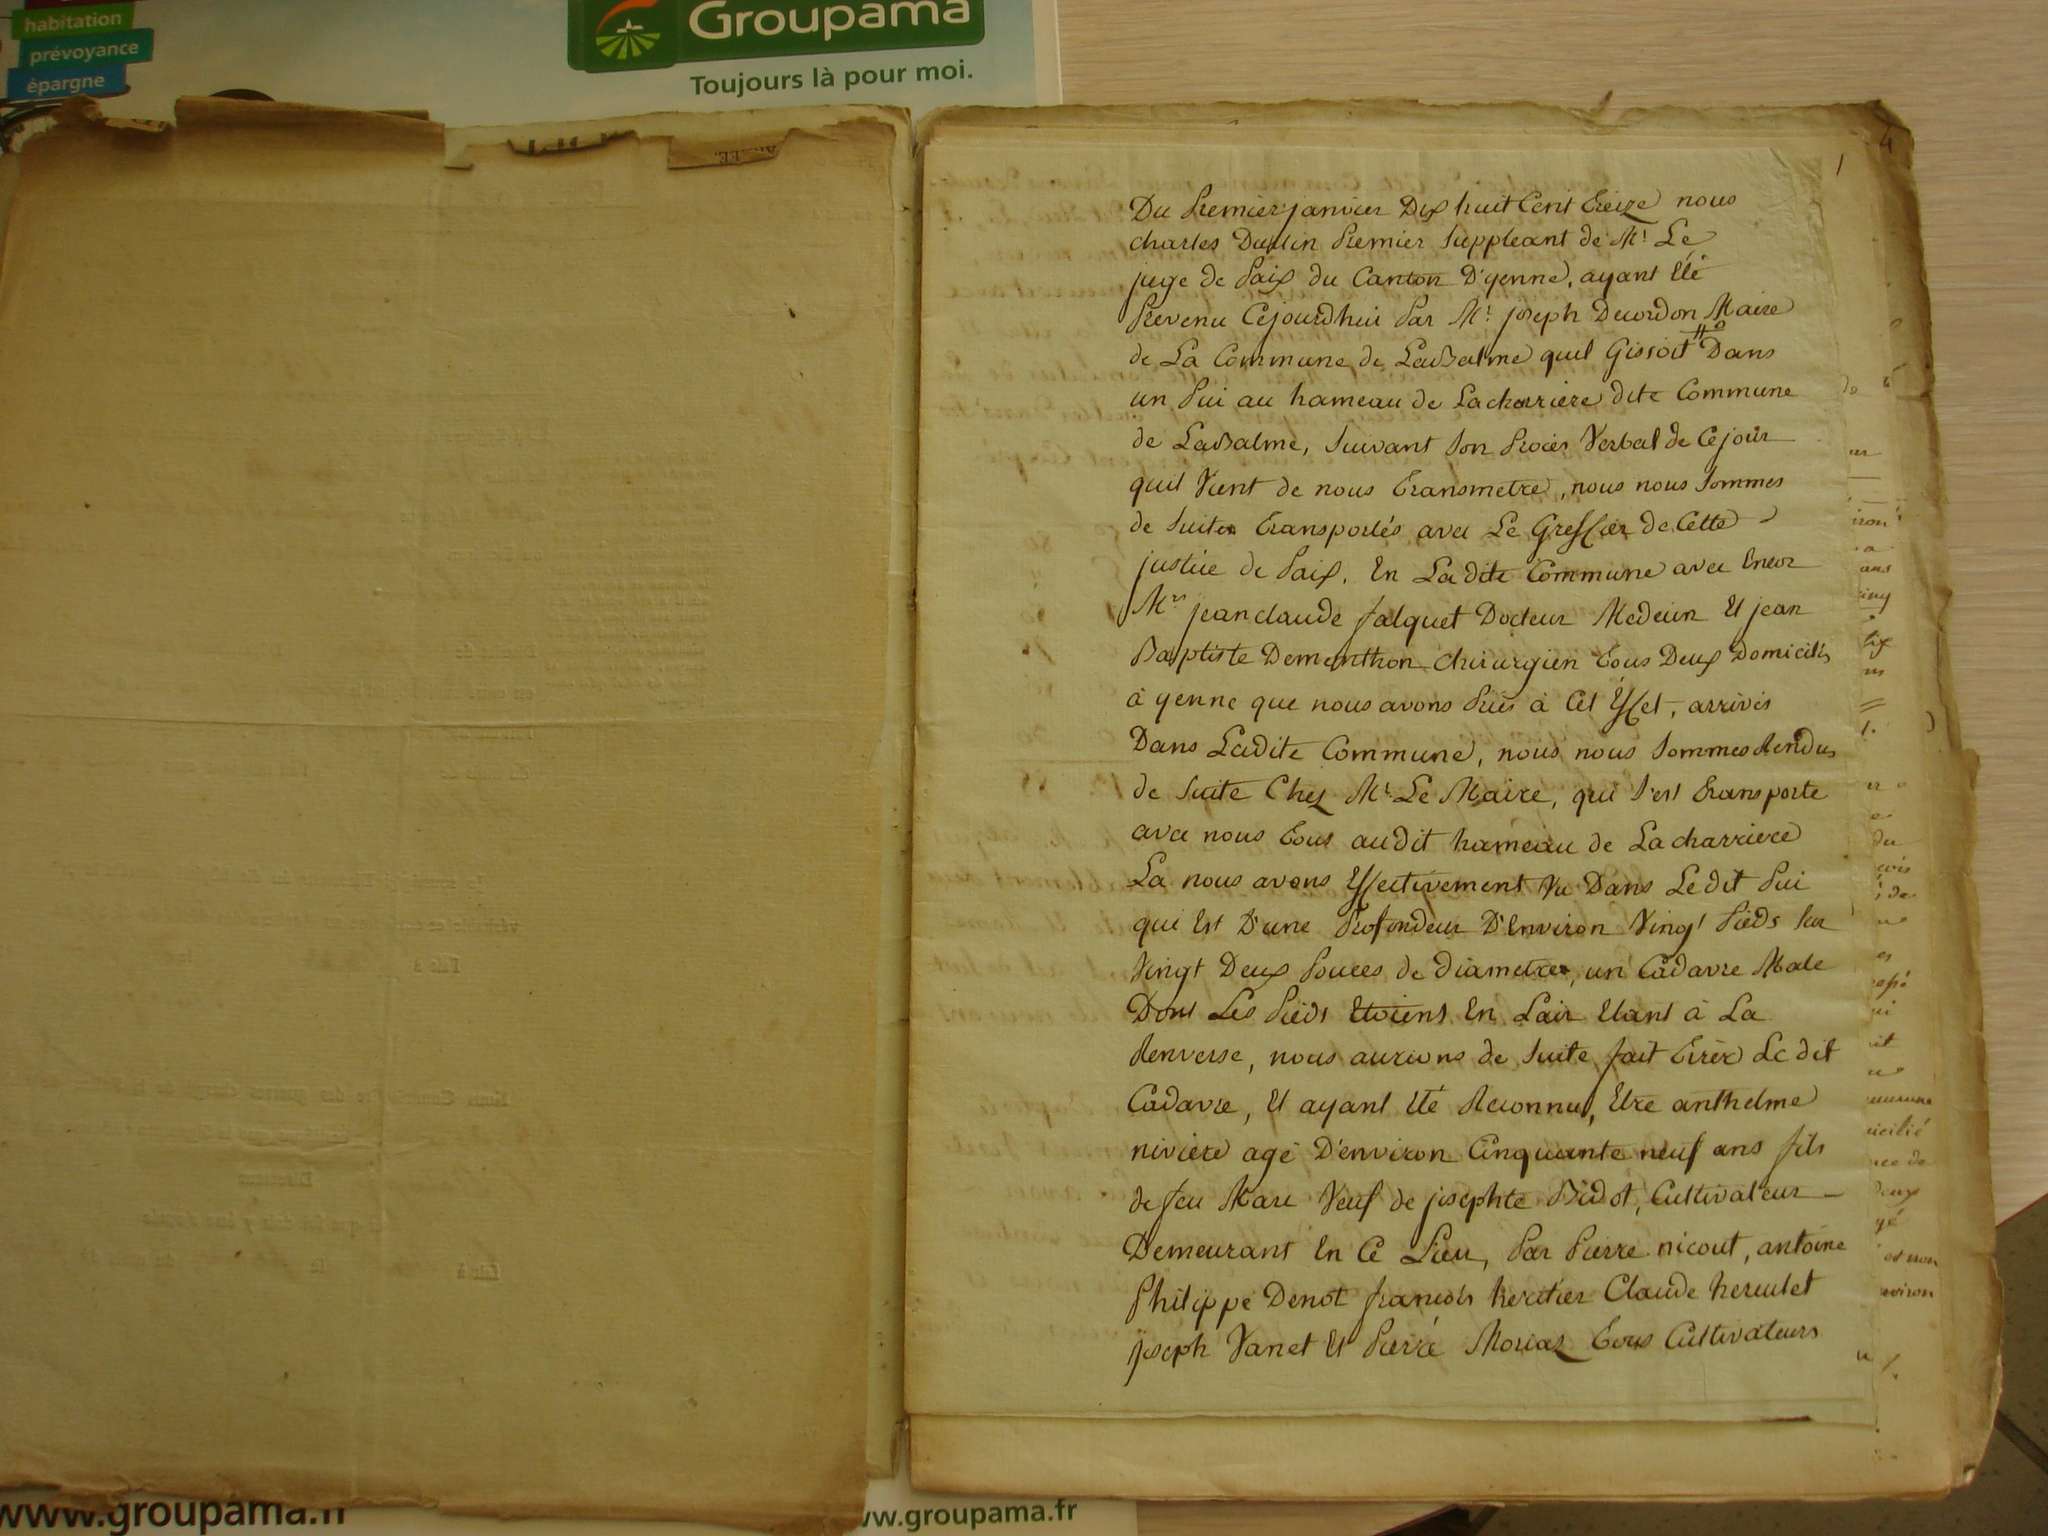 habitation
prévoyance
épargne
Groupama
Toujours là pour moi.
1
4
Du Premier janvier Dix huit Cent Treize nous
charles Dullin Premier Suppleant de Mr Le
juge de Paix du Canton D'yenne, ayant Eté
Prevenu Cejourdhui Par Mr joseph Decordon Maire
de La Commune de LaBalme quil Gissoit # Dans
un Pui au hameau de Lacharriere dite Commune
de LaBalme, Suivant Son Procès Verbal de Cejour
quil Vient de nous Transmetre, nous nous Sommes
de Suite Transportés avec Le Greffier de Cette
justice de Paix, En Ladite Commune avec Encor
Mrs jeanclaude falquet Docteur Medecin Et jean
Baptiste Dementhon chirurgien Tous Deux Domiciliés
à yenne que nous avons Priés à Cet Effet, arrivés
Dans Ladite Commune, nous nous Sommes Rendus
de Suite Chez Mr Le Maire, qui S'est transporte
avec nous Tous audit hameau de Lacharriere
La nous avons Effectivement Vu Dans Ledit Pui
qui Est D'une Profondeur D'Environ Vingt Pieds Sur
Vingt Deux Pouces de diametre, un Cadavre Male
Dont Les Pieds Etoient En Lair Etant à La
Renverse, nous aurions de Suite fait Tirer Le dit
Cadavre, Et ayant Eté Reconnu, Etre anthelme
niviere agé D'environ Cinquante neuf ans fils
de feu Marc Veuf de josephte Bidot, Cultivateur
Demeurant En Ce Lieu, Par Pierre nicout, antoine
Philippe Denot francois heritier Claude herculet
joseph Vanet Et Pierre Moriaz Tous Cultivateurs
www.groupama.fr
www.groupama.fr